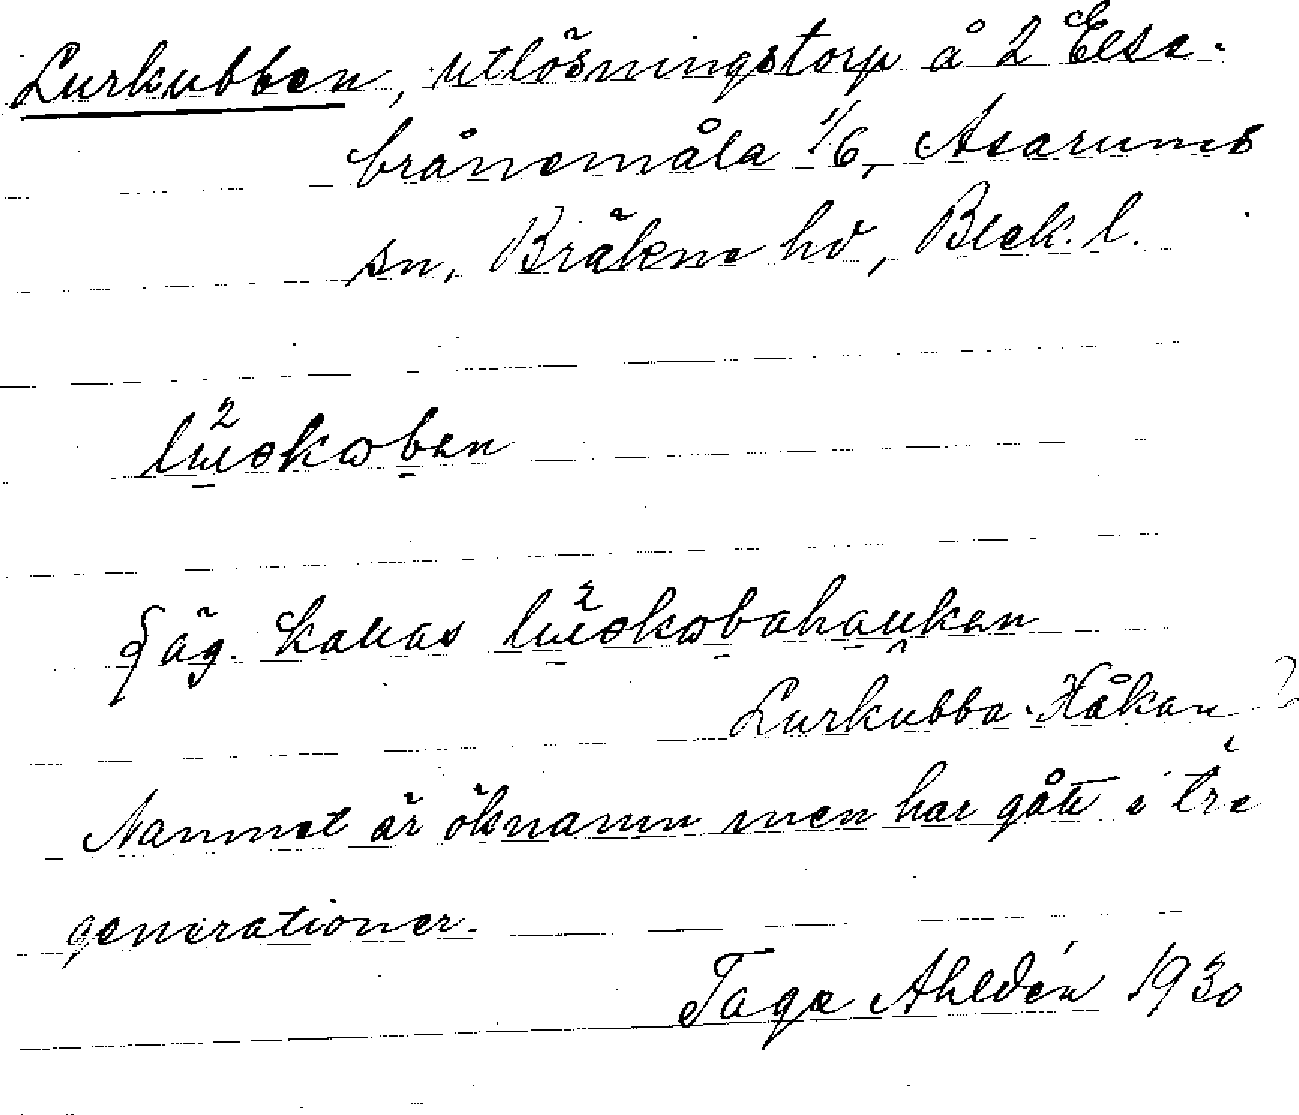 Lurkubben, utlösningstorp å 2 Else-
brånemåla 1/6, Asarums
sn, Bräkne hd, Blek. l.
säg. kallas
Lurkubba-Håkan?
Namnet är öknamn men har gått i tre
generationer.
Tage Ahldén 1930